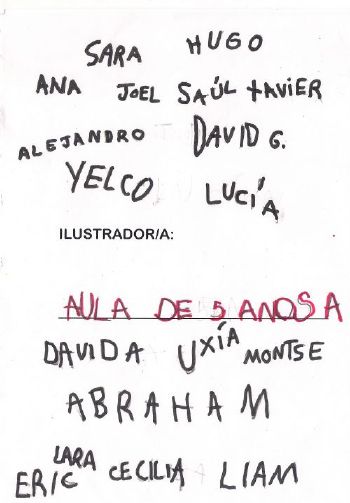 SARA HUGO
ANA JOEL SAÚL XAVIER
ALEJANDRO DAVID G.
YELCO LUCÍA
ILUSTRADOR/A:
AULA DE 5 ANOS A
DAVID A UXÍA MONTSE
ABRAHAM
LARA
ERIC CECILIA LIAM